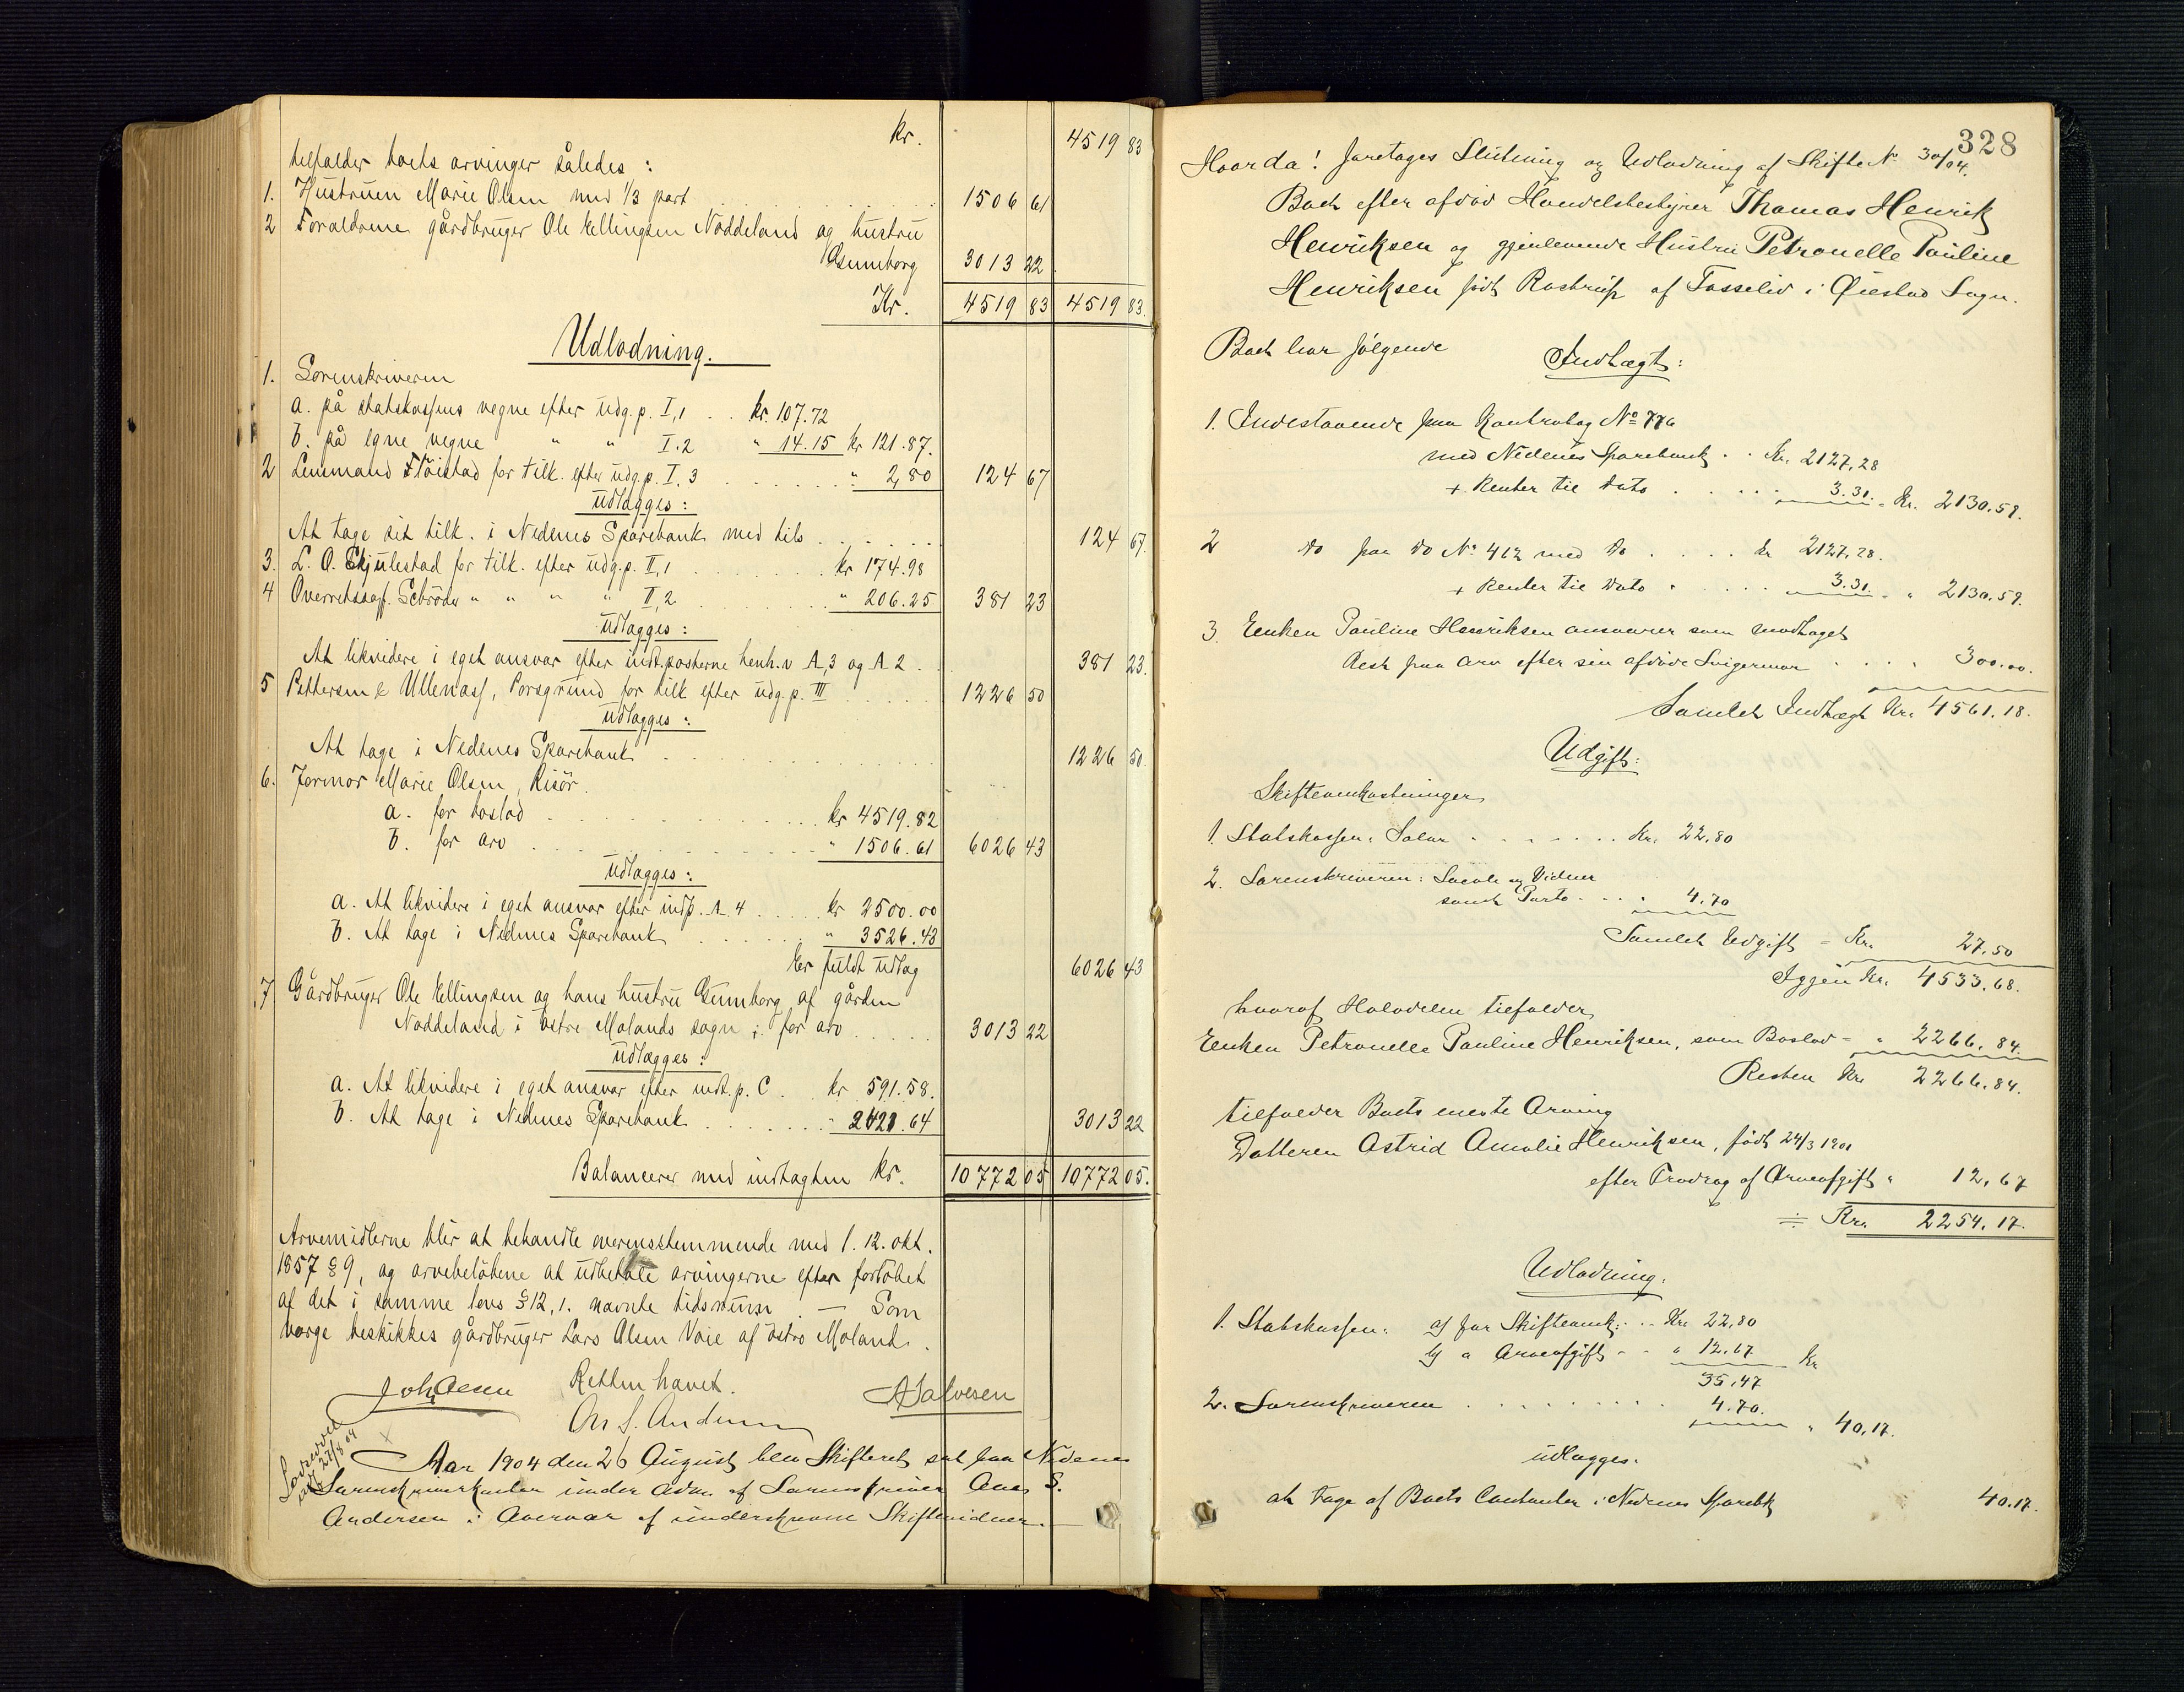 kr. 4519 83
tilfalder boets arvinger således:
1. Hustruen Marie Olsen med 1/3 part 1506 61
2 Forældrene gårdbruger Ole Ellingsen Noddeland og hustru
Gunnborg 3013 22
Kr. 4519 83 4519 83.
Udlodning.
1. Sorenskriveren
a. på statskassens vegne efter udg.p. I,1 . . kr. 107.72
b. på egne vegne " " I.2 " 14.15 kr 121.87.
2 Lensmand Fløistad for tilk. efter udg.p. I.3 " 2,80 124 67
udlægges:
At tage sit tilk. i Nedenes Sparebank med tils. 124 67.
3. L. O. Skjulestad for tilk. efter udg.p. II,1 kr 174.98
4 Overretssagf. Schrøder " " " " II,2 " 206.25 381 23
udlægges:
At likvidere i eget ansvar efter indt.posterne henh.v A,3 og A 2 . 381 23.
5 Pettersen & Ullenass, Porsgrund for tilk efter udg.p. III 1226 50
udlægges:
At tage i Nedenes Sparebank 1226 50.
6. Formor Marie Olsen, Risør.
a. for boslod kr 4519.82
b. for arv " 1506.61 6026 43
udlægges:
a. At likvidere i eget ansvar efter indp. A 4 kr 2500.00
b. At tage i Nedenes Sparebank " 3526.43
Er fuldt udlag 6026 43
7 Gårdbruger Ole Ellingsen og hans hustru Gunnborg af gården
Noddeland i østre Molands sogn; for arv 3013 22
udlægges:
a. At likvidere i eget ansvar efter indt.p. C . kr 591.58.
b. At tage i Nedenes Sparebank " 2421.64 3013 22
Balancerer med indtægten kr. 10772 05 10772 05.
Arvemidlerne blir at behandle overensstemmende med l. 12. okt.
1857 § 9, og arvebeløbene at udbetale arvingerne efter forløbet
af det i samme lovs § 12, 1. nævnte tidsrum. — Som
værge beskikkes gårdbruger Lars Olsen Voie af østre Moland.
Retten hævet.
Joh Olsen A Salvesen
Ans S. Andersen
Aar 1904 den 26 August blev Skifteret sat paa Nedenes
Sorenskriverkontor under Adm. af Sorenskriver Ans S.
Andersen i Overvær af underskrevne Skiftevidner.
328
Hvorda! foretages Slutning og Udlodning af Skifte No 30/04.
Boet efter afdød Handelsbestyrer Thomas Henrik
Henriksen og gjenlevende Hustru Petronelle Pauline
Henriksen født Rostrup af Fosselid i Øiestad Sogn.
Boet har følgende
Indtægt:
1. Indestaaende paa Kontrabog No 776
med Nedenes Sparebank . . Kr. 2127,28
+ Renter til Dato 3.31. = Kr. 2130.59.
2 Do paa Do No 412 med Do . . . . Kr 2127,28.
+ Renter til Dato 3.31. = " 2130.59.
3. Enken Pauline Henriksen ansvarer som modtaget
Rest paa Arv efter sin afdøde Svigermor 300.00.
Samlet Indtægt Kr. 4561.18.
Udgift:
Skifteomkostninger
1. Statskassen: Salær Kr. 22.80
2. Sorenskriveren: Sportler og Vidner
samt Porto 4.70
Samlet Udgift = Kr. 27.50
Igjen Kr. 4533.68.
hvoraf Halvdelen tilfalder
Enken Petronelle Pauline Henriksen, som Boslod = " 2266.84.
Resten Kr. 2266.84.
tilfalder Boets eneste Arving
Datteren Astrid Amalie Henriksen, født 24/3 1901
efter Fradrag af Arveafgift " 12,67
= Kr. 2254.17.
Udlodning.
1. Statskassen: a/ for Skifteomk: . . Kr. 22,80
b/ " Arveafgift - - " 12.67 Kr
35,47
2. Sorenskriveren 4.70. " 40,17.
udlægges.
at tage af Boets Contanter i Nedenes Sparebk 40.17.